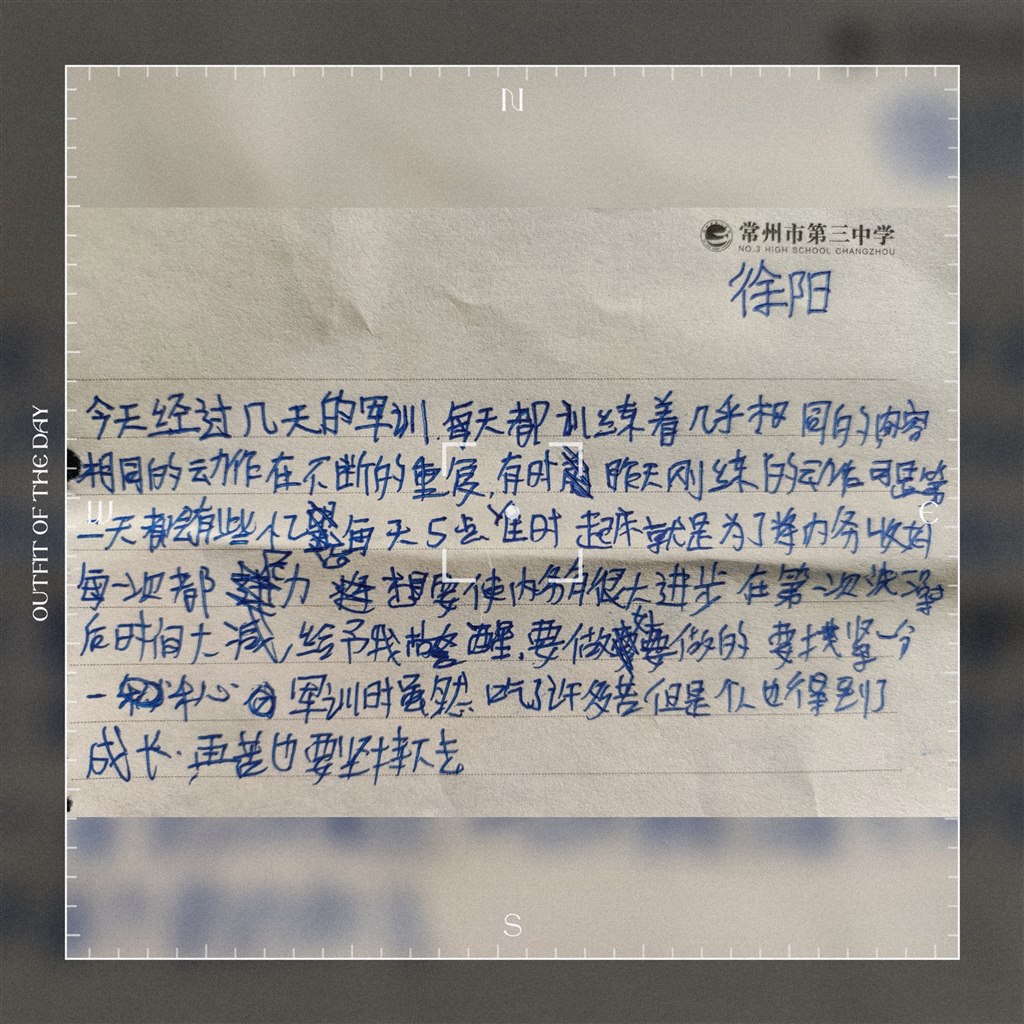 N
常州市第三中学
NO.3 HIGH SCHOOL CHANGZHOU
徐阳
OUTFIT OF THE DAY
今天经过几天的军训 每天都训练着几乎相同的内容
相同的动作在不断的重复,有时 昨天刚练的动作可是第
二天都会有些忘 每天5点 时起床就是为了将内务收好
每一次都 力 想要使内务有很大进步 在第一次洗澡
后时间大减,给予我 醒.要做 要做的 要 紧一个
一 军训时虽然吃了许多苦但是个人也得到了
成长.再苦也要坚持下去
W
E
S